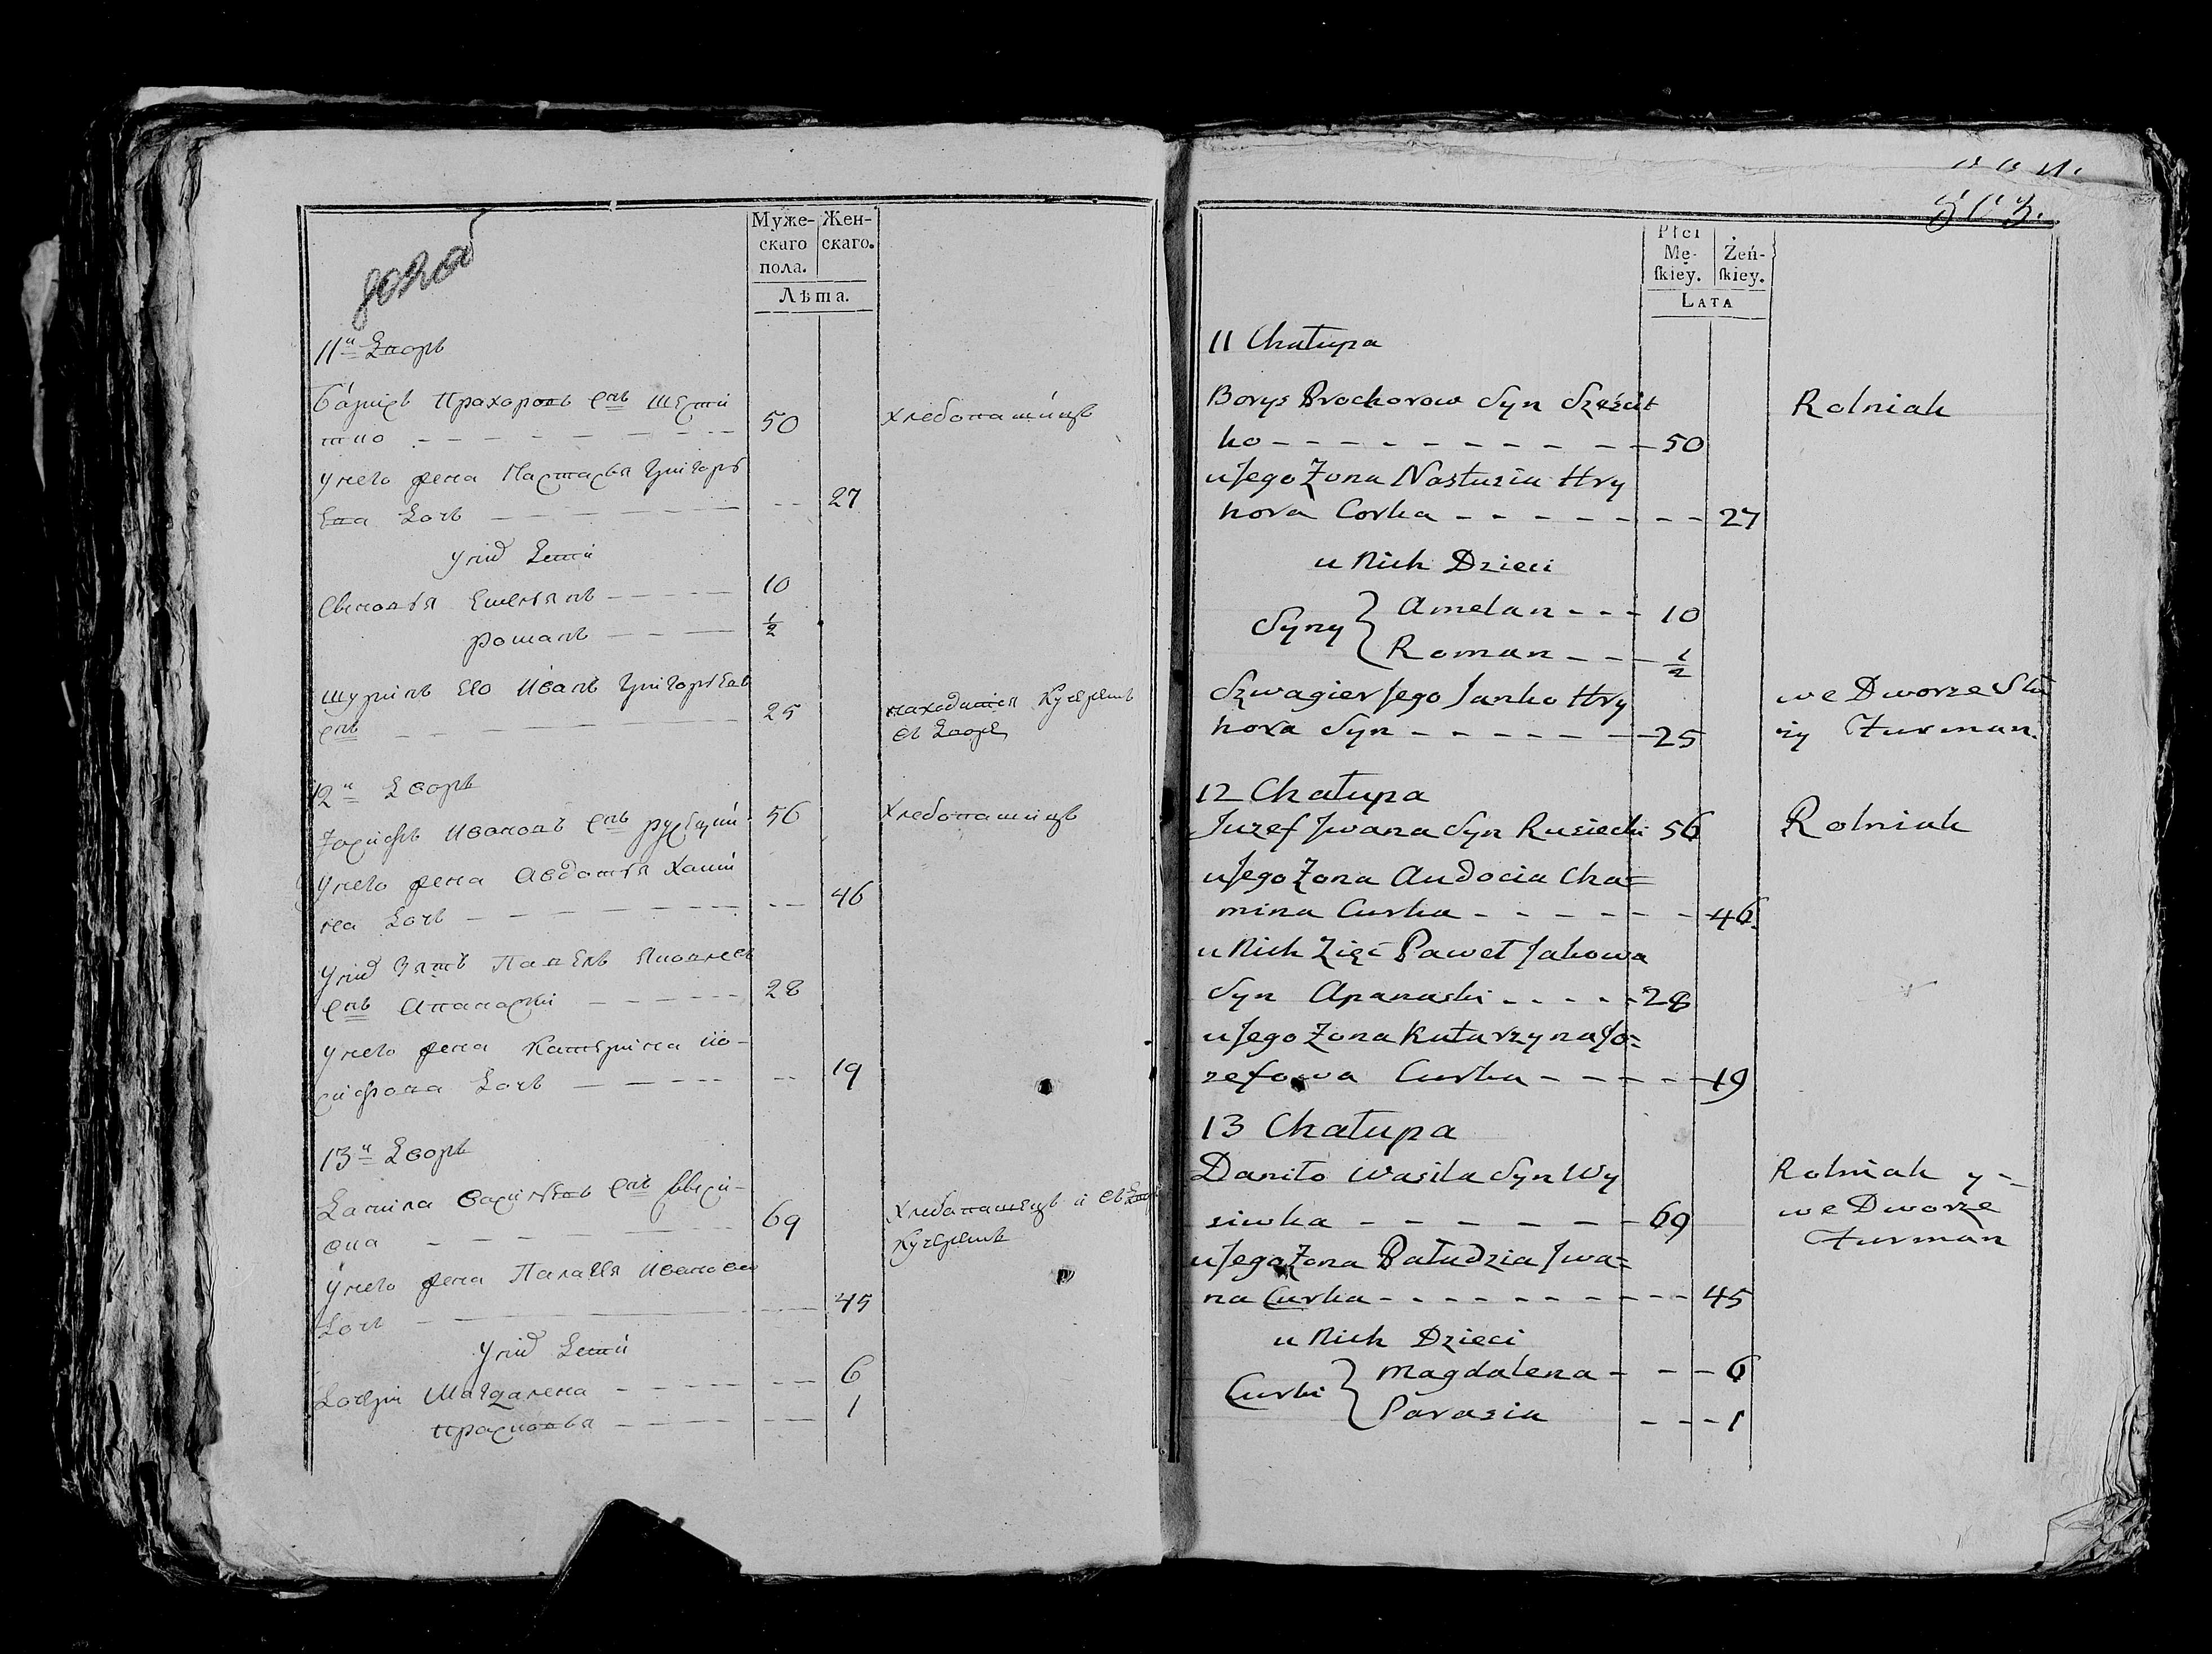 Муже-
скаго
пола.
Жен-
скаго.
Лѣта.
11й Дворъ
Барисъ Прахоровъ снъ Шести
тко - - - - - - - - 50 Хлебопашицъ
У него жена Настасья Григорь
ева дочъ - - - - - - - - 27
У нихъ дети
Сыновья Емельянъ - - - - - 10
Романъ - - - - 1/2
Шуринъ его Иванъ Григорьевъ
снъ - - - - - - - 25 находится Кучеромъ
въ Дворе
12й Дворъ
Іосифъ Ивановъ снъ Русецкий 56 Хлебопашицъ
У него жена Авдотья Хоми
на дочъ - - - - - - - - 46
У нихъ зять Павелъ Яковлевъ
снъ Апанаски - - - - - - 28
У него жена Катерина Ио-
сифова дочъ - - - - - - 19
13й Дворъ
Данила Васильевъ снъ
69 Хлебопашецъ и въ
Кучеромъ
У него жена Палагея Иванова
дочъ - - - - - - - - 45
У нихъ дети
Дочери Магдалена - - - - - - 6
Прасковья - - - - - - 1
Płci
Mę-
skiey.
Żeń-
skiey.
LATA
11 Chałupa
Borys Prochorow Syn
ko - - - - - - - - - - - 50 Rolniak
u Jego Żona Nastusia Hry
hora Corka - - - - - - - - 27
u Nich Dzieci
Syny { Amelan - - - 10
Roman - - - 1/2
Szwagier Jego Janko Hry
hora Syn - - - - - - - 25
we Dworze Słu
ży Furman.
12 Chałupa
Juzef Jwana Syn Rusiecki 56 Rolniak
u Jego Żona Audocia Cha=
mina Curka - - - - - - - 46
u Nich Zięć Paweł Jakowa
Syn Apanaski - - - - - 28
u Jego Żona Katarzyna Jo=
zefowa Curka - - - - - - 19
13 Chałupa
Daniło Wasila Syn Wy
siwka - - - - - - - 69
Rolniak y -
we Dworze
Furman
u Jego Żona Pałudzia Jwa=
na Curka - - - - - - - - - - - 45
u Nich Dzieci
Curki { Magdalena - - - 6
Parasia - - - 1